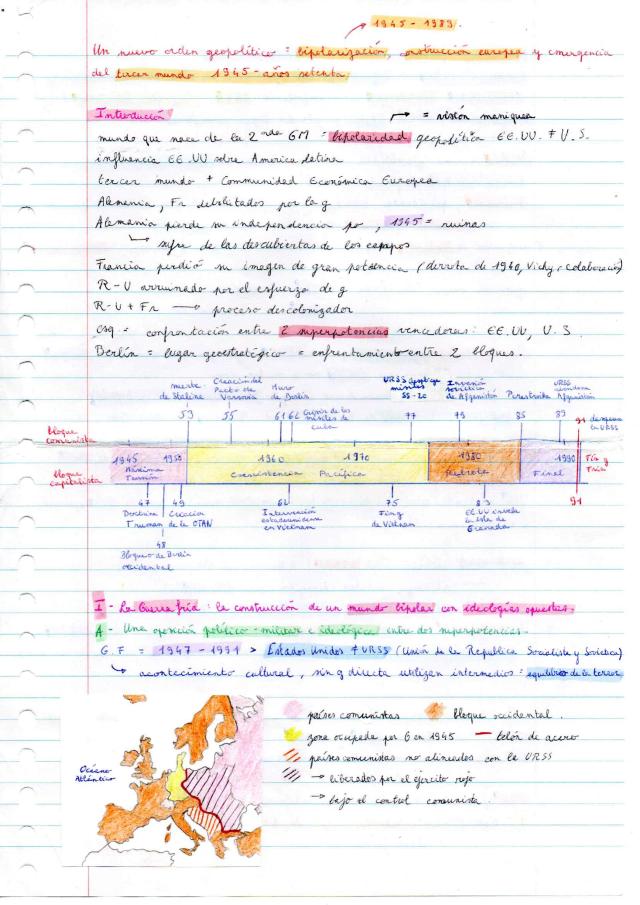 1945 - 1989.
Un nuevo orden geopolítico = bipolarización, construcción europea y emergencia
del tercer mundo 1945 - años setenta
Introducción
= visión maniquea
mundo que nace de la 2 nda GM = bipolaridad geopolítica EE.UU. ≠ U.S.
influencia EE.UU sobre America latina
tercer mundo + Communidad Económica Europea
Alemania, Fr debilitados por la g
Alemania pierde su independencia po, 1945 = ruinas
sufre de las descubiertas de los campos
Francia perdió su imagen de gran potencia (derrota de 1940, Vichy, colaboración)
R-U arruinado por el esfuerzo de g
R-U + Fr → proceso descolonizador
esq = confrontación entre 2 superpotencias vencedoras: EE.UU, U.S.
Berlín = lugar geoestratégico = enfrentamiento entre 2 bloques.
muerte de Staline
Creación del Pacto de Varsovia
Muro de Berlín
Crisis de los misiles de Cuba
URSS despliega misiles SS-20
Invasión soviética de Afganistán
Perestroika
URSS abandona Afganistán
53 55 61 62 77 79 85 89 91 desaparece la URSS
bloque comunista
1945 1950 1960 1970 1980 1990
Máxima Tensión Coexistencia Pacífica Final
bloque capitalista
47 49 62 75 83 91
Doctrina Truman
Creación de la OTAN
Intervención estadounidense en Vietnam
Fin g de Vietnam
EE.UU invade la isla de Granada
48
Bloqueo de Berlín occidental
I - La Guerra fría : la construcción de un mundo bipolar con ideologías opuestas.
A - Una oposición político-militar e ideológica entre dos superpotencias.
G.F = 1947 - 1991 > Estados Unidos ≠ URSS (Unión de la Republica Socialista y Sovietica)
↳ acontecimiento cultural, sin g directa utilizan intermedios = equilibrio de la terror
Océano Atlántico
países comunistas
bloque occidental.
zona ocupada por G en 1945
telón de acero
países comunistas no alineados con la URSS
→ liberados por el ejército rojo
→ bajo el control comunista.